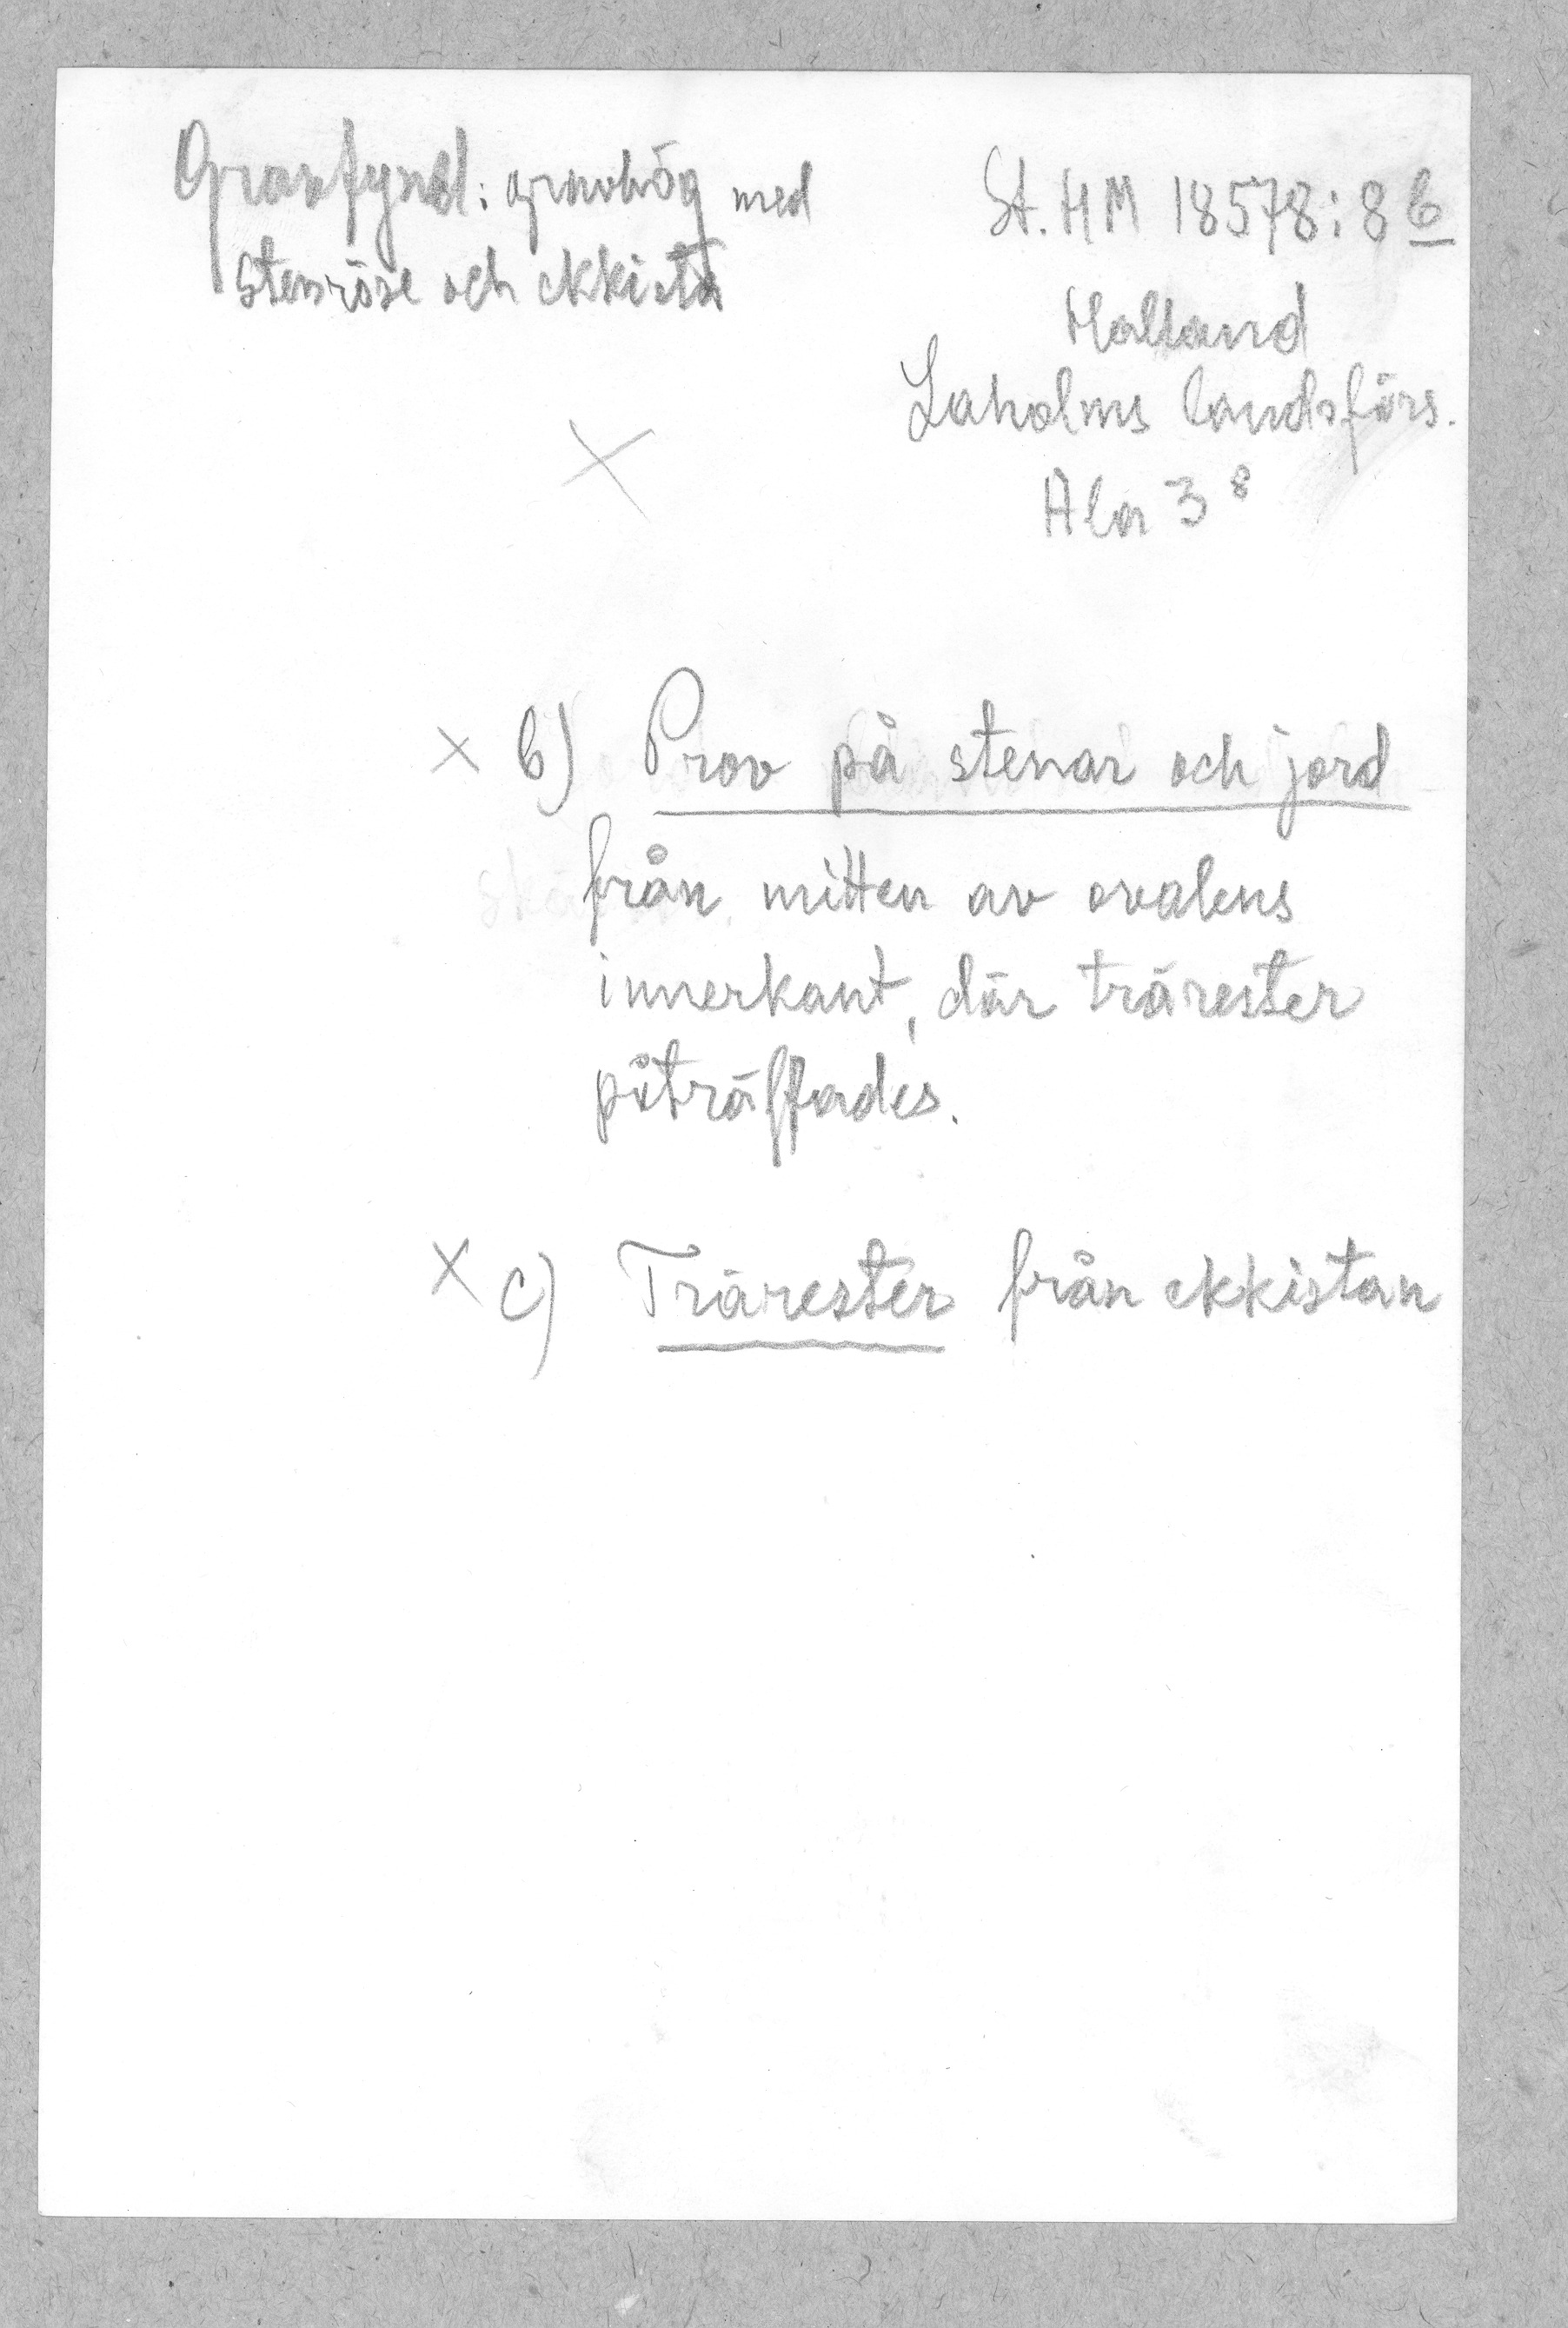 Gravfynd: gravhög med
stenröse och ekkista
St. HM 18578:8 b
Halland
Laholms landsförs.
Ala 3 8
×
× b) Prov på stenar och jord
från mitten av ovalens
innerkant, där trärester
påträffades.
× c) Trärester från ekkistan